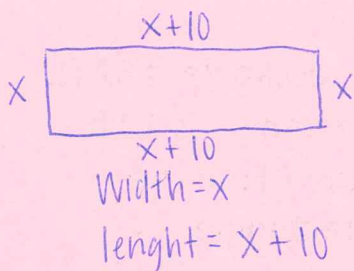 x+10
x x
x+10
Width=x
lenght= x+10